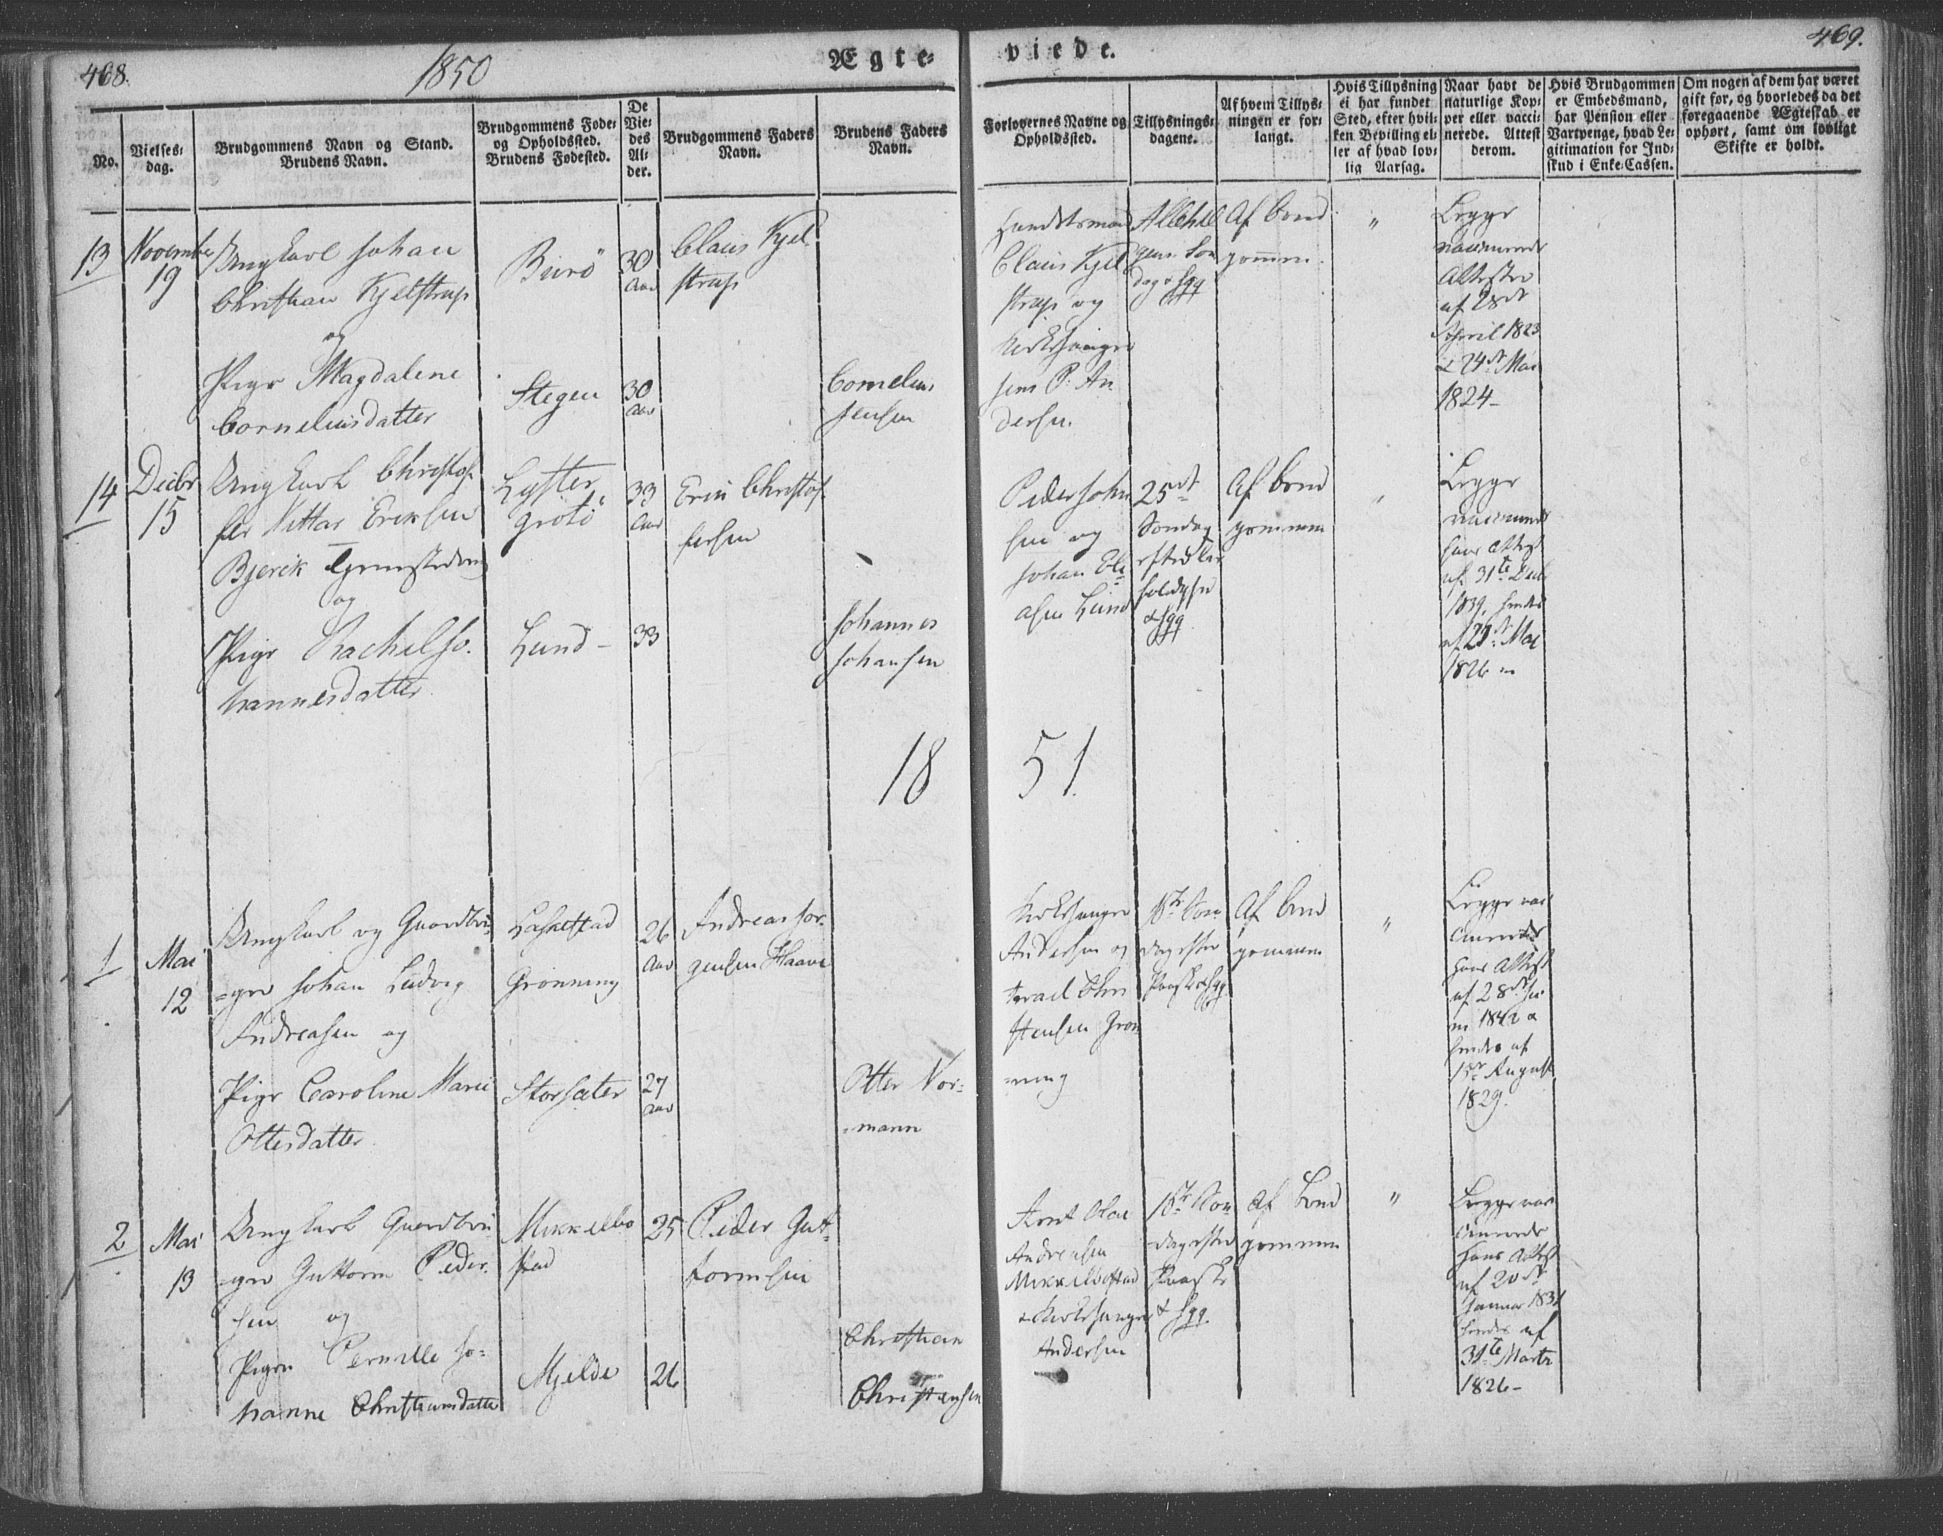 468.
1850
Ægte-
viede.
469.
No.
Vielses-
dag.
Brudgommens Navn og Stand.
Brudens Navn.
Brudgommens Føde-
og Opholdssted.
Brudens Fødested.
De
Vie-
des
Al-
der.
Brudgommens Faders
Navn.
Brudens Faders
Navn.
Forlovernes Navne og
Opholdssted.
Tillysnings-
dagene.
Af hvem Tillys-
ningen er for-
langt.
Hvis Tillysning
ei har fundet
Sted, efter hvil-
ken Bevilling el-
ler af hvad lov-
lig Aarsag.
Naar havt de
naturlige Kop-
per eller vacci-
nerede. Attest
derom.
Hvis Brudgommen
er Embedsmand,
har Pension eller
Vartpenge, hvad Le-
gitimation for Ind-
skud i Enke-Cassen.
Om nogen af dem har været
gift før, og hvorledes da det
foregaaende Ægteskab er
ophørt, samt om lovligt
Skifte er holdt.
13
November
19
Ungkarl Johan
Christian Kjelstrup
og
Pige Magdalene
Corneliusdatter
Burö
Stegen
30
Aar
30
Aar
Claus Kjel
strup
Cornelius
Jensen
Claus Kjel
strup og
Kirkesanger
Jens P. An
dersen.
Allehel
gens Son
dag & fgg
Af brud
gommen.
"
Begge
vaccinerede
Attester
af 28de
April 1823
& 24de Mai
1824-
14
Decbr
15
Ungkarl Christof
fer Vittar Eriksen
Bjerik
og
Pige Rachel Jo-
hannesdatter
Lyster
Grotö
Lund -
33
Aar
33
Erik Christof
fersen
Johannes
Johansen
Peder Johan
sen og
Johan Eli
asen Lund
25de
Søndag
efter
& fgg.
Af brud
gommen
"
Begge
hans Attest
af 31te Decbr
1839, hendes
af 21de Mai
1826
18 51.
1
Mai
12
Ungkarl og Gaardbru-
-ger Johan Ludvig
Andreasen og
Pige Caroline Marie
Ottesdatter
Laskestad
Grönning
Storsæter
26
Aar
27
Aar
Andreas Jör-
gensen Haave
Otter Nor-
-mann
Kirkesanger
Andersen og
Israel Chri
stensen Grön
-ning
1ste Søn
dag efter
Paaske & fgg.
Af brud
gommen
"
Begge vac
cinerede
hans Attest
af 28de Ju
ni 1842 &
hendes af
1ste August
1829.
2
Mai
13
Ungkarl Gaardbru
-ger Guttorm Peder-
sen og
Pigen Pernille Jo-
hanne Christiansdatter
Mikkelbo
stad
Mjelde
25
26
Peder Gut-
tormsen
Christian
Christensen
Arnt Olai
Andreasen
Mikkelbostad
& Kirkesanger
Andersen
1ste Søn
dag efter
Paaske
& fgg.
Af brud
gommen
"
Begge vac
cinerede
hans Attest
af 20de
Januar 1831
hendes af
31te Marts
1826-